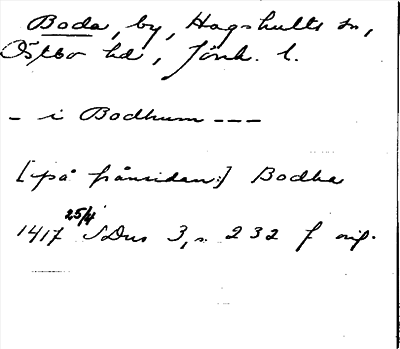 Boda, by, Hagshults sn,
Östbo hd, Jönk. l.
- i Bodhum ---
[på frånsidan:] Bodha
1417 25/4 SDns 3, s. 232 f orig.